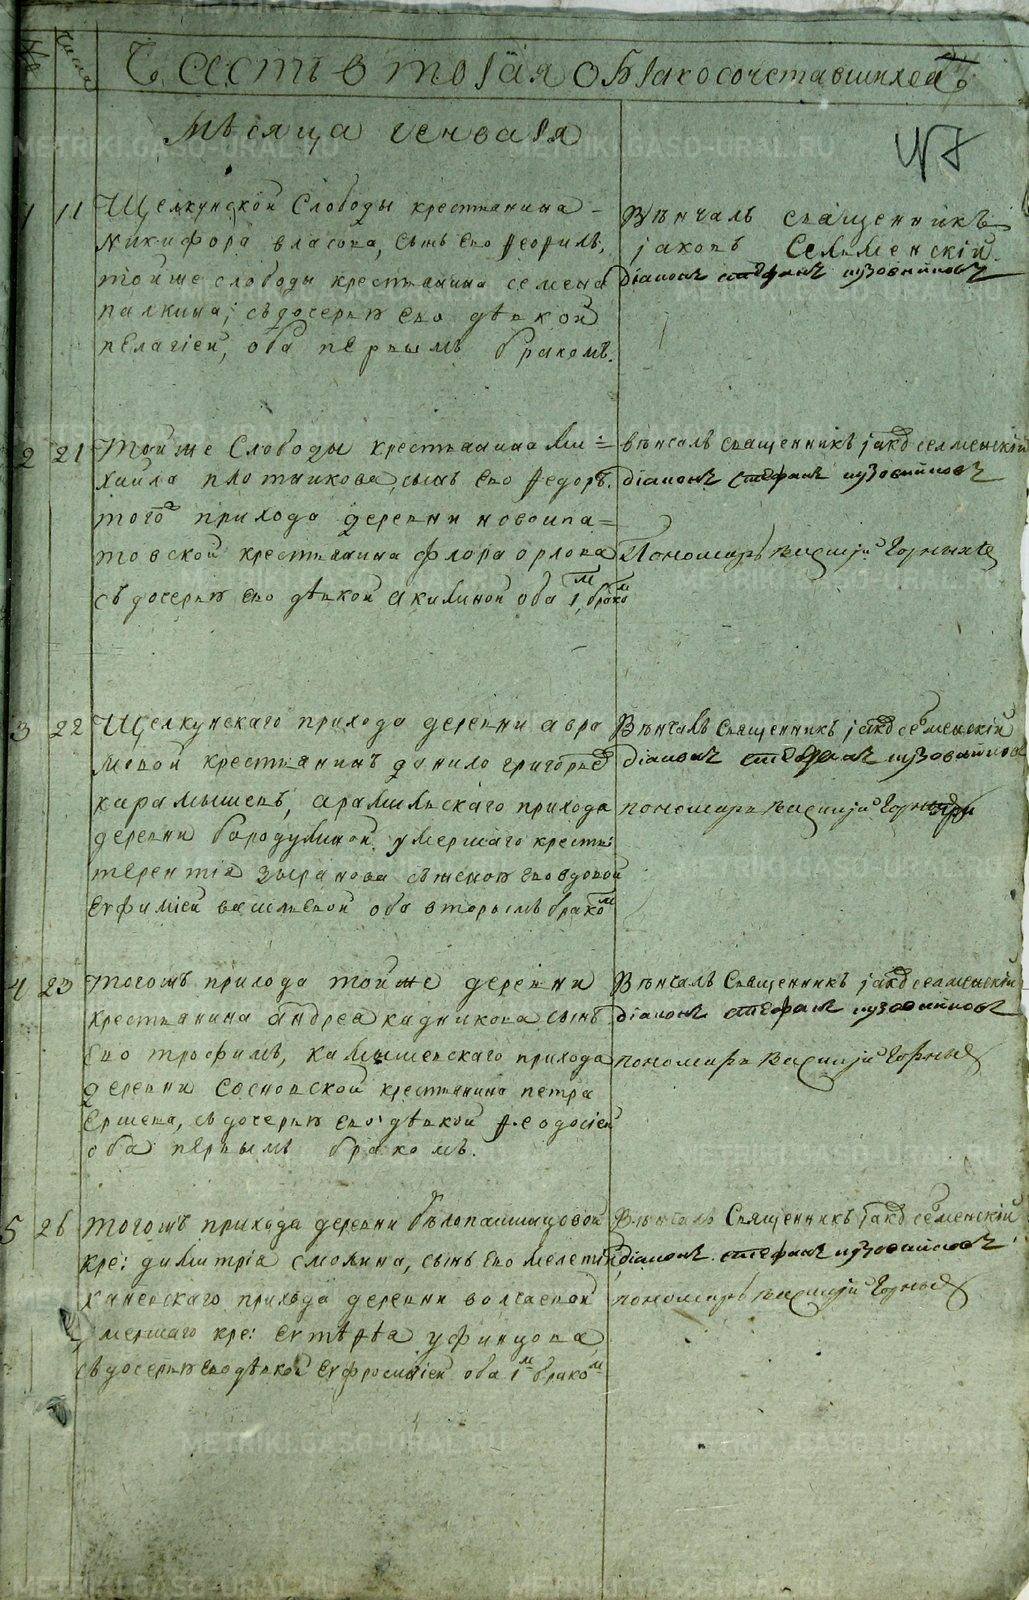 № Числа
Часть вторая о бракосочетавшихся
Мѣсяца генваря
1 11 Щелкунской Слободы крестьянина
Никифора власова, сынъ Ево Феофилъ,
тойже слободы крестьянина семена
палкина, съ дочерью Ево дѣвкой
пелагіей, оба первымъ бракомъ.
Вѣнчалъ священникъ
іаковъ Селменскій
діаконъ стефанъ пузовниковъ
2 21 Тойже Слободы крестьянина Ми=
хаила плотникова, сынъ Ево Федоръ.
того прихода деревни новоипа=
товской крестьянина флора орлова
съ дочерью Ево дѣвкой акилиной оба 1м брако м
вѣнчалъ священникъ іаковъ селменскій
діаконъ стефанъ пузовниковъ
Пономарь василій Горныхъ
3 22 Щелкунскаго прихода деревни авра
мовой крестьянинъ данило григорьевъ
карамышевъ, арамильскаго прихода
деревни бородулиной умершаго кресть:
терентіа зырянова съ женою Ево вдовой
Евфиміей васильевой оба вторымъ брако м
Вѣнчалъ Священникъ іаковъ селменскій
діаконъ стефанъ пузовниковъ
пономарь василій Горныхъ
4 23 тогожъ прихода тойже деревни
крестьянина андреа кадникова сынъ
Ево трофимъ, камышевскаго прихода
деревни Сосновской крестьянина петра
Ершева, съ дочерью Ево дѣвкой феодосіей
оба первымъ бракомъ.
Вѣнчалъ Священникъ іаковъ селменскій
діаконъ стефанъ пузовниковъ
пономарь Василій Горныхъ
5 26 тогожъ прихода деревни бѣлопашинцовой
кре: димитріа смолина, сынъ Ево мелетій,
каневскаго прихода деревни волчаевой
умершаго кре: Ермѣа уфинцова
съ дочерью Ево дѣвкой Евфросиніей оба 1м брако м
Вѣнчалъ Священникъ іаковъ селменскій
діаконъ стефанъ пузовниковъ
пономарь василій Горныхъ
METRIKI.GASO-URAL.RU